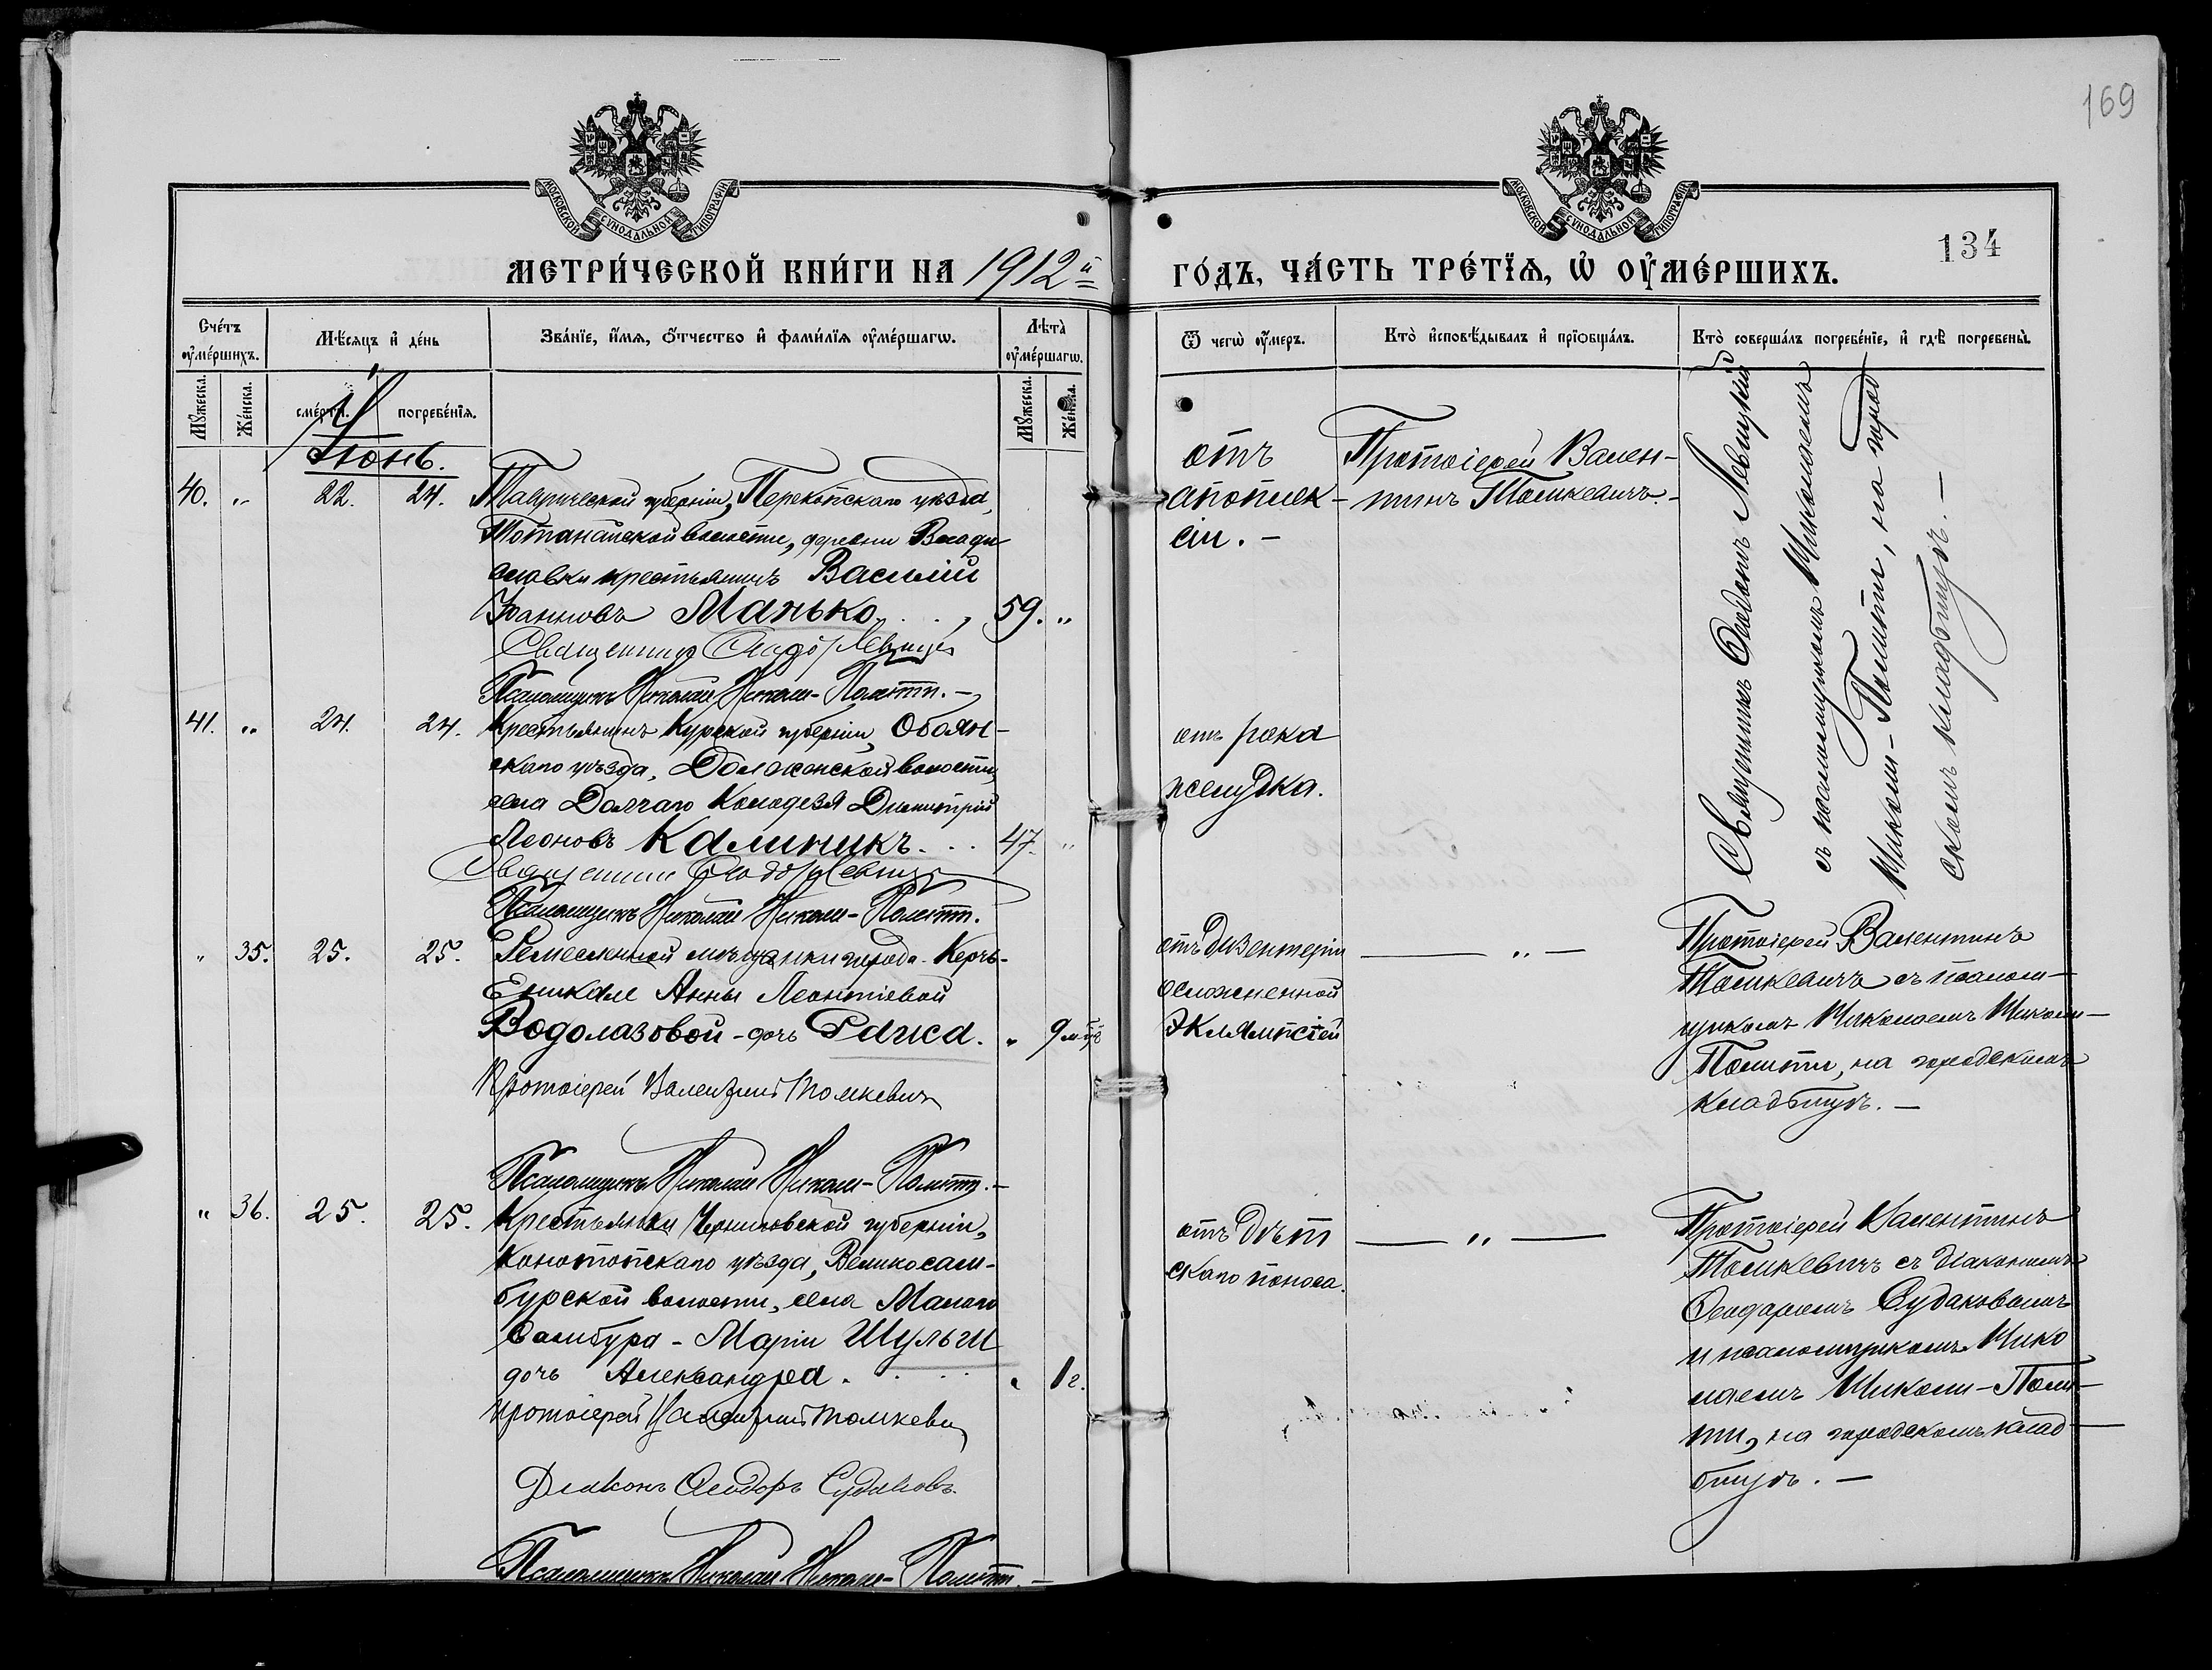 169
134
МОСКОВСКОЙ СУНОДАЛЬНОЙ ТИПОГРАФІИ
МОСКОВСКОЙ СУНОДАЛЬНОЙ ТИПОГРАФІИ
МЕТРИ́ЧЕСКОЙ КНИ́ГИ НА 1912й
ГО́ДЪ, ЧА́СТЬ ТРЕ́ТЇѦ, Ѡ҆ ОУ҆МЕ́РШИХЪ.
Сче́тъ оу҆ме́ршихъ.
Мѣ́сѧцъ и҆ де́нь
Зва́нїе, и҆́мѧ, ѻ҆́тчество и҆ фами́лїѧ оу҆ме́ршагѡ.
Лѣта̀ оу҆ме́ршагѡ.
Ѿ чегѡ̀ оу҆́меръ.
Кто̀ и҆сповѣ́дывалъ и҆ прїѻбща́лъ.
Кто̀ соверша́лъ погребе́нїе, и҆ гдѣ̀ погребены̀.
Мꙋ́жеска.
Же́нска.
сме́рти.
погребе́нїѧ.
Мꙋ́жеска.
Же́нска.
Іюнь.
40. „ 22. 24. Таврической губерніи, Перекопскаго уѣзда,
Тотанайской волости, деревни Влади
славки крестьянинъ Василій
Іоанновъ Манько. 59. „
Священникъ Ѳеодоръ Левицкій
Псаломщикъ Николай Николи-Политти.
отъ
апоплек-
сіи. -
Протоіерей Вален-
тинъ Томкевичъ. -
Священникъ Ѳеодоръ Левицкій
съ псаломщикомъ Николаемъ
Николи-Политти, на город
скомъ кладбищѣ. -
41. „ 24. 24. Крестьянинъ Курской губерніи, Обоян-
скаго уѣзда, Долженской волости,
села Долгаго Колодезя Димитрій
Леоновъ Калиникъ. 47. „
Священникъ Ѳеодоръ Левицкій
Псаломщикъ Николай Николи-Политти.
отъ рака
желудка.
„ 35. 25. 25. Ремесленной мѣщанки города Керчь-
Еникале Анны Леонтіевой
Водолазовой - дочь Раиса. „ 9 м-цѣ
Протоіерей Валентинъ Томкевичъ
Псаломщикъ Николай Николи-Политти. -
отъ дизентеріи
осложненной
эклямпсіей
— „ —
Протоіерей Валентинъ
Томкевичъ съ псалом-
щикомъ Николаемъ Николи-
Политти, на городскомъ
кладбищѣ. -
„ 36. 25. 25. Крестьянки Черниговской губерніи,
Конотопскаго уѣзда, Великосам-
бурской волости, села Малаго
Самбура - Маріи Шульги
дочь Александра. „ 1 г.
Протоіерей Валентинъ Томкевичъ
Діаконъ Ѳеодоръ Судаковъ.
Псаломщикъ Николай Николи-Политти. -
отъ дѣт
скаго поноса.
— „ —
Протоіерей Валентинъ
Томкевичъ съ діакономъ
Ѳеодоромъ Судаковымъ
и псаломщикомъ Нико
лаемъ Николи-Полит-
ти, на городскомъ клад-
бищѣ. -